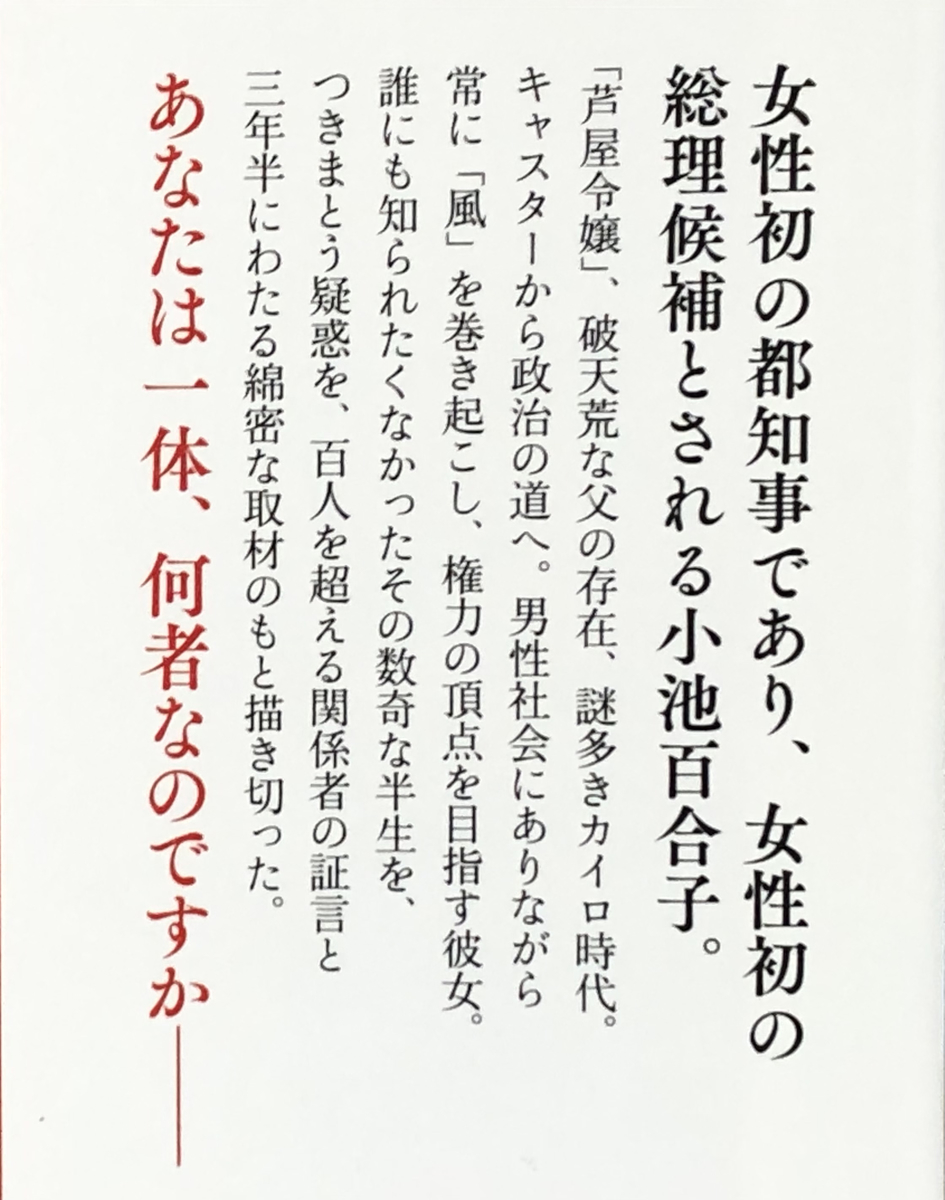 女性初の都知事であり、女性初の
総理候補とされる小池百合子。
「芦屋令嬢」、破天荒な父の存在、謎多きカイロ時代。
キャスターから政治の道へ。男性社会にありながら
常に「風」を巻き起こし、権力の頂点を目指す彼女。
誰にも知られたくなかったその数奇な半生を、
つきまとう疑惑を、百人を超える関係者の証言と
三年半にわたる綿密な取材のもと描き切った。
あなたは一体、何者なのですか――